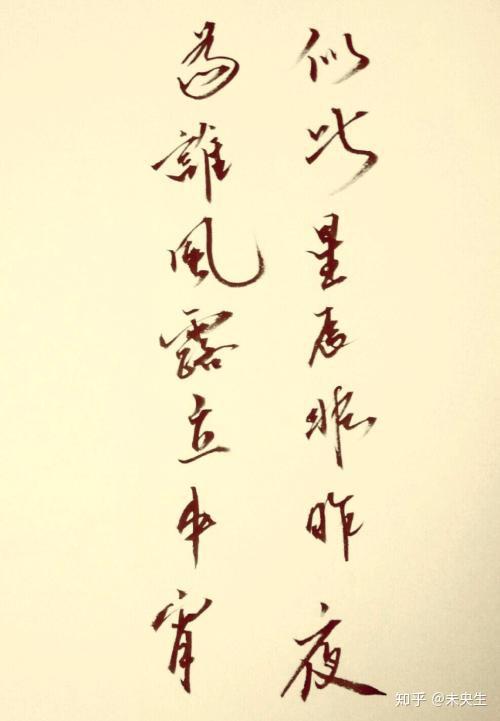 似此星辰非昨夜
為誰風露立中宵
知乎 @未央生